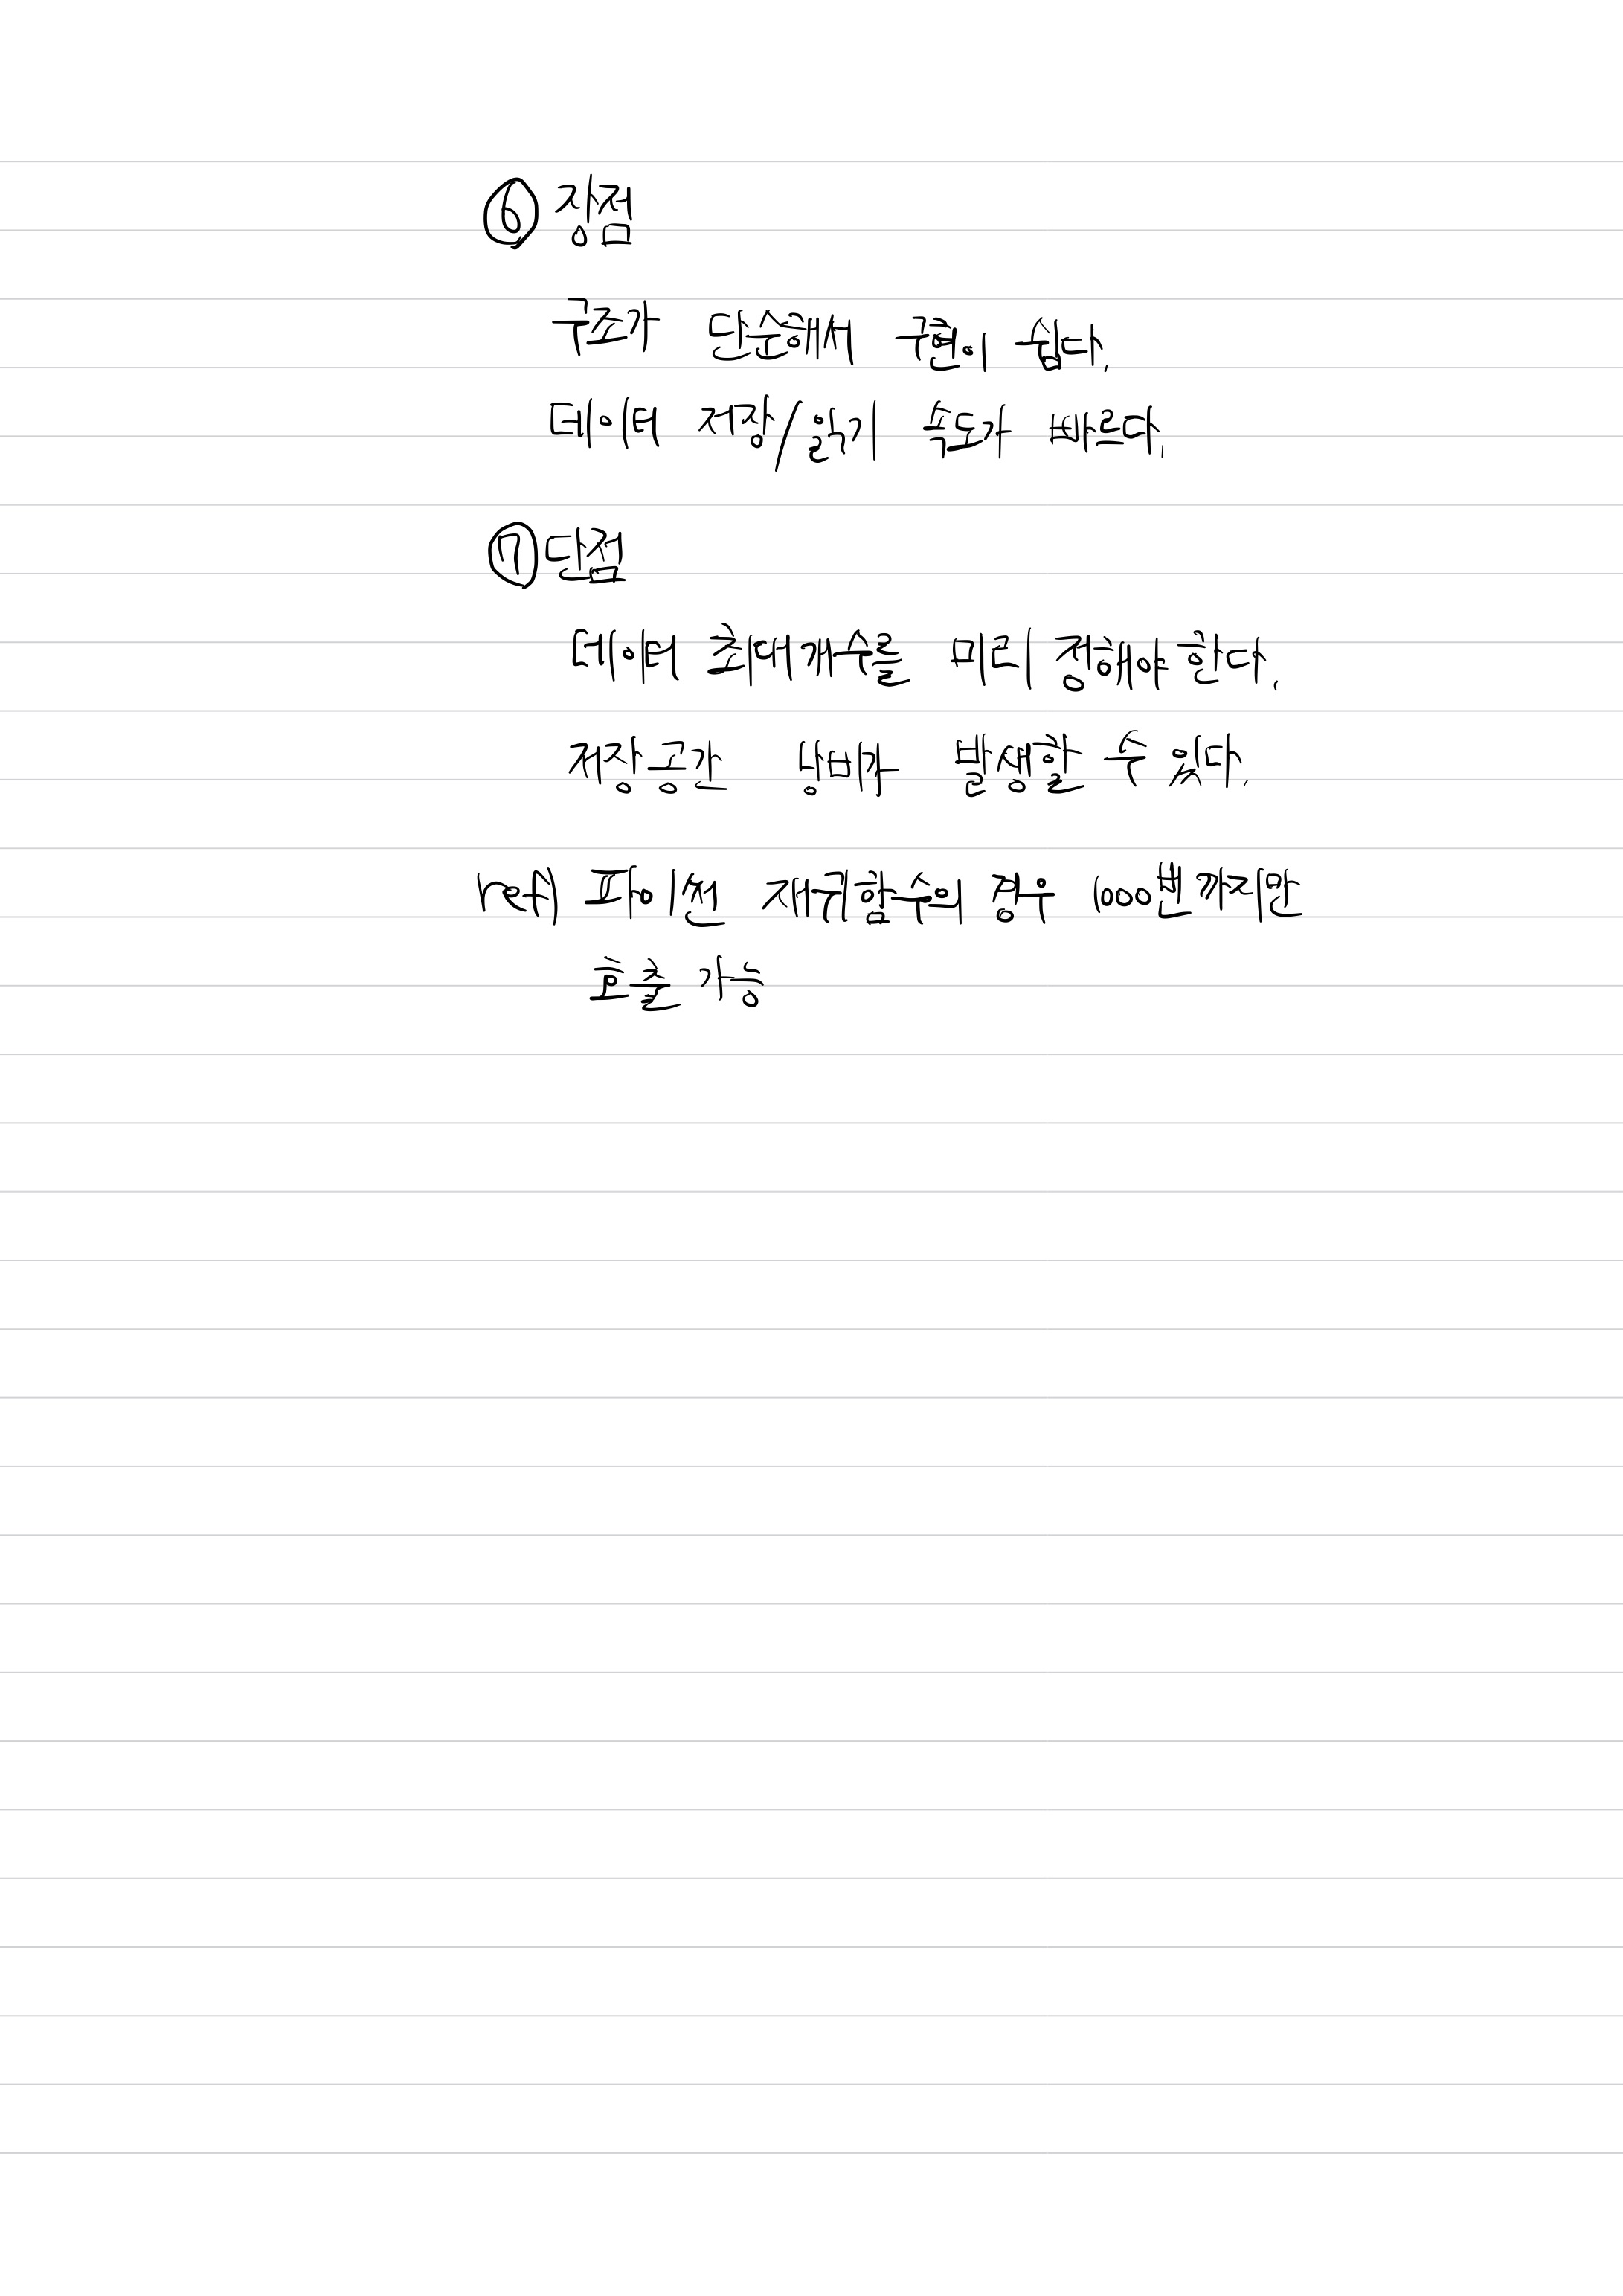 ⑥ 장점
구조가 단순해서 구현이 쉽다.
데이터 저장/읽기 속도가 빠르다.
⑦ 단점
데이터 최대개수를 미리 정해야한다.
저장공간 낭비가 발생할 수 있다.
ref) 파이썬 재귀함수의 경우 1000번까지만
호출 가능